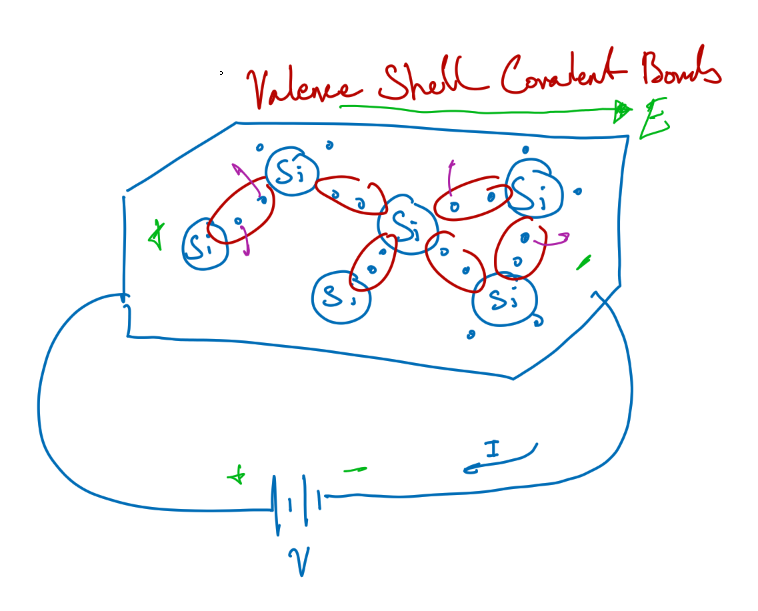 Valence Shell Covalent Bonds
E
Si
Si
Si
Si
+
Si
Si
-
I
+ -
V